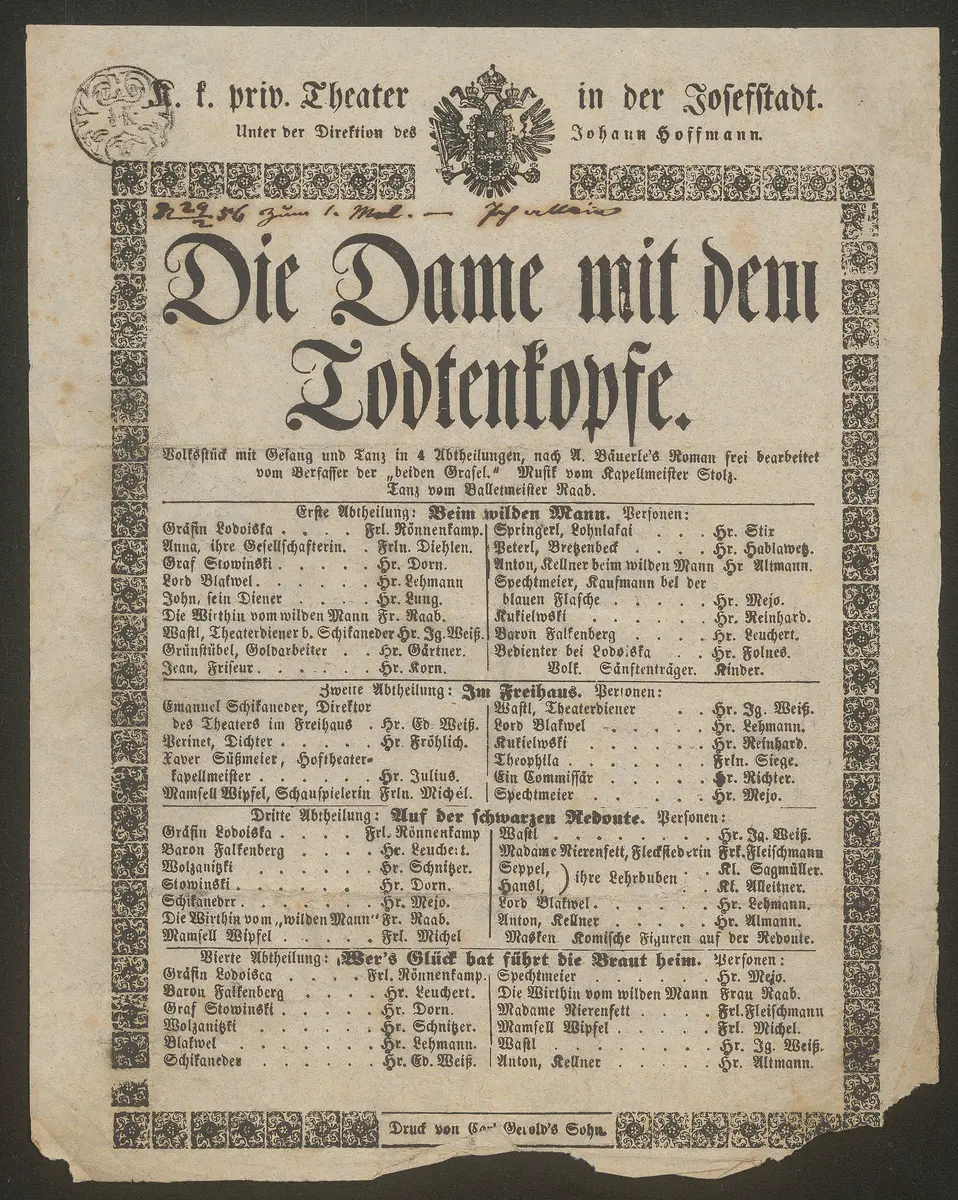 K. k. priv. Theater in der Josefstadt.
Unter der Direktion des Johann Hoffmann.
29/2 56 zum 1. Mal. —
Die Dame mit dem
Todtenkopfe.
Volksstück mit Gesang und Tanz in 4 Abtheilungen, nach A. Bäuerle's Roman frei bearbeitet
vom Verfasser der „beiden Grasel." Musik vom Kapellmeister Stolz.
Tanz vom Balletmeister Raab.
Erste Abtheilung: Beim wilden Mann. Personen:
Gräfin Lodoiska . . . . Frl. Rönnenkamp.
Anna, ihre Gesellschafterin. . Frln. Diehlen.
Graf Stowinski . . . . . Hr. Dorn.
Lord Blakwel . . . . . . Hr. Lehmann
John, sein Diener . . . . . Hr. Lung.
Die Wirthin vom wilden Mann Fr. Raab.
Wastl, Theaterdiener b. Schikaneder Hr. Ig. Weiß.
Grünstübel, Goldarbeiter . . Hr. Gärtner.
Jean, Friseur . . . . . . Hr. Korn.
Springerl, Lohnlakai . . . Hr. Stix
Peterl, Bretzenbeck . . . . Hr. Hablawetz.
Anton, Kellner beim wilden Mann Hr Altmann.
Spechtmeier, Kaufmann bei der
blauen Flasche . . . . . Hr. Mejo.
Kukielwski . . . . . . Hr. Reinhard.
Baron Falkenberg . . . . Hr. Leuchert.
Bedienter bei Lodoiska . . Hr. Folnes.
Volk. Sänftenträger. Kinder.
Zweite Abtheilung: Im Freihaus. Personen:
Emanuel Schikaneder, Direktor
des Theaters im Freihaus . Hr. Ed. Weiß.
Perinet, Dichter . . . . . Hr. Fröhlich.
Xaver Süßmeier, Hoftheater-
kapellmeister . . . . . . Hr. Julius.
Mamsell Wipfel, Schauspielerin Frln. Michél.
Wastl, Theaterdiener . . Hr. Ig. Weiß.
Lord Blakwel . . . . . Hr. Lehmann.
Kukielwski . . . . . . Hr. Reinhard.
Theophila . . . . . . Frln. Siege.
Ein Commissär . . . . . Hr. Richter.
Spechtmeier . . . . . . Hr. Mejo.
Dritte Abtheilung: Auf der schwarzen Redoute. Personen:
Gräfin Lodoiska . . . . Frl. Rönnenkamp
Baron Falkenberg . . . . Hr. Leuchert.
Wolzanitzki . . . . . Hr. Schnitzer.
Stowinski . . . . . . Hr. Dorn.
Schikaneder . . . . . . Hr. Mejo.
Die Wirthin vom „wilden Mann" Fr. Raab.
Mamsell Wipfel . . . . . Frl. Michel
Wastl . . . . . . . Hr. Ig. Weiß.
Madame Nierenfett, Fleckstederin Frk. Fleischmann
Seppel, ) ihre Lehrbuben . . Kl. Sagmüller.
Hansl, Kl. Alleitner.
Lord Blakwel . . . . . Hr. Lehmann.
Anton, Kellner . . . . Hr. Almann.
Masken Komische Figuren auf der Redoute.
Vierte Abtheilung: Wer's Glück hat führt die Braut heim. Personen:
Gräfin Lodoisca . . . . Frl. Rönnenkamp.
Baron Falkenberg . . . . Hr. Leuchert.
Graf Stowinski . . . . . Hr. Dorn.
Wolzanitzki . . . . . . Hr. Schnitzer.
Blakwel . . . . . . . Hr. Lehmann.
Schikaneder . . . . . . Hr. Ed. Weiß.
Spechtmeier . . . . . Hr. Mejo.
Die Wirthin vom wilden Mann Frau Raab.
Madame Nierenfett . . . . Frl. Fleischmann
Mamsell Wipfel . . . . . Frl. Michel.
Wastl . . . . . . . Hr. Ig. Weiß.
Anton, Kellner . . . . . Hr. Altmann.
Druck von Carl Gerold's Sohn.